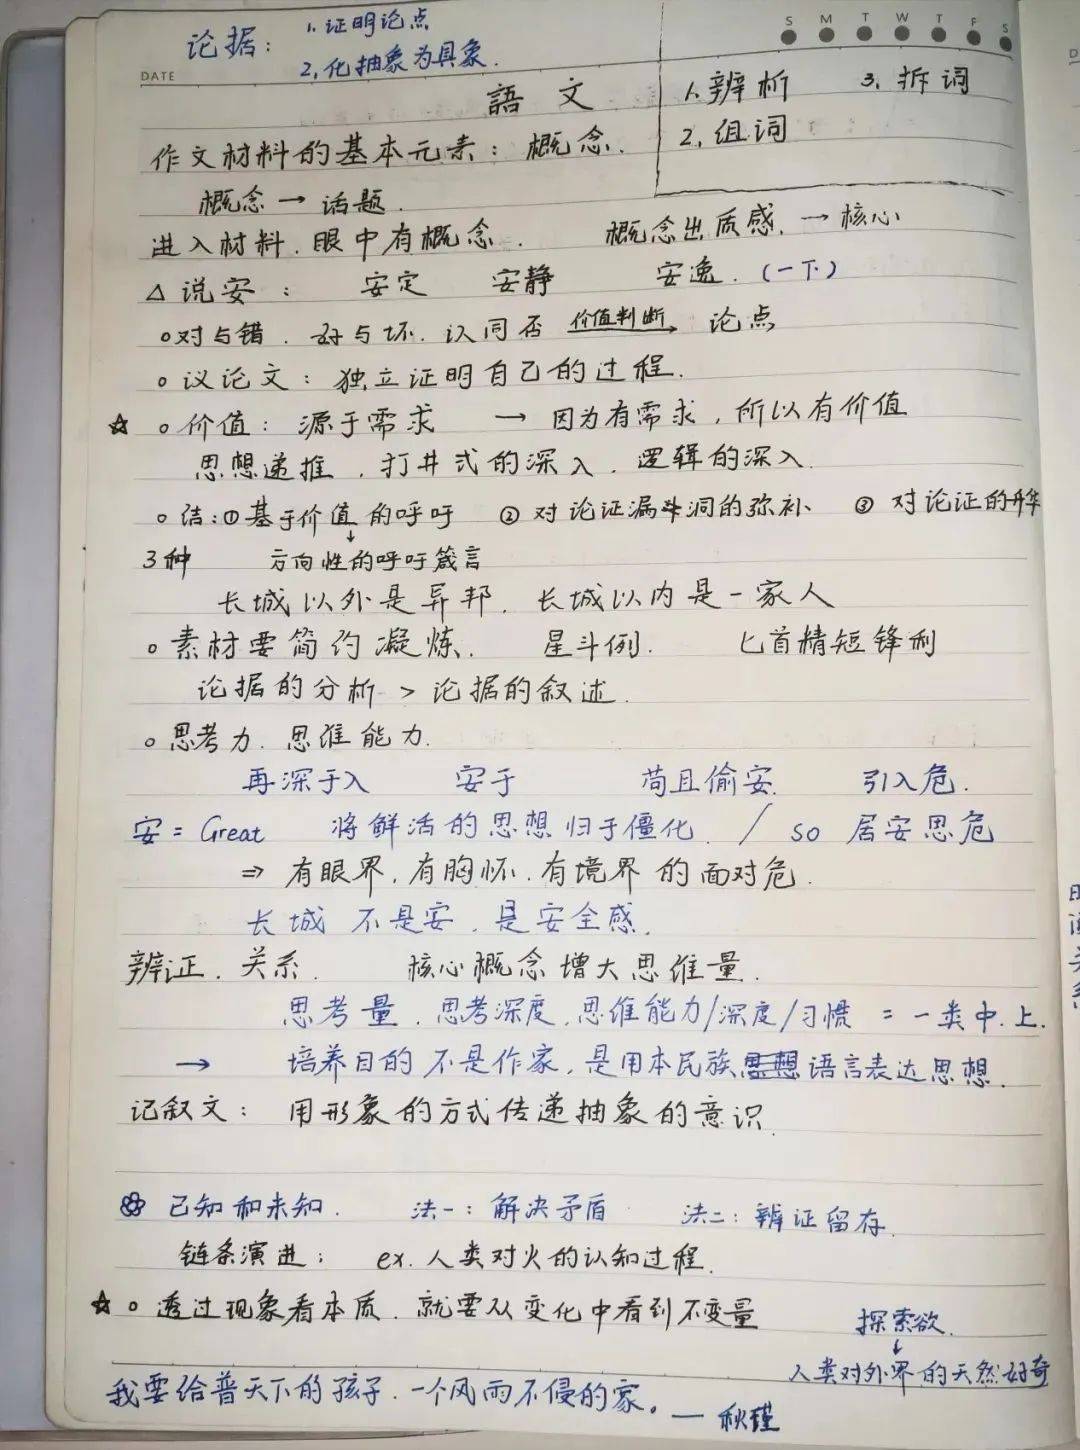 论据： 1. 证明论点
2. 化抽象为具象.
S M T W T F S
DATE
語 文
1. 辨析 3. 拆词
2. 组词
作文材料的基本元素：概念.
概念 → 话题.
进入材料. 眼中有概念. 概念出质感. → 核心
△ 说安： 安定 安静 安逸. (一下)
○ 对与错. 好与坏. 认同否 价值判断→ 论点
○ 议论文：独立证明自己的过程.
☆ ○ 价值：源于需求 → 因为有需求, 所以有价值
思想递推, 打井式的深入, 逻辑的深入.
○ 结：① 基于价值的呼吁 ② 对论证漏洞的弥补、 ③ 对论证的升华
3种 ↓ 方向性的呼吁箴言
长城以外是异邦, 长城以内是一家人
○ 素材要简约凝炼. 星斗例. 匕首精短锋利
论据的分析 > 论据的叙述.
○ 思考力. 思维能力.
再深于入 安于 苟且偷安. 引入危.
安 = Great 将鲜活的思想归于僵化. / so 居安思危
⇒ 有眼界, 有胸怀, 有境界的面对危.
长城 不是安, 是安全感.
辨证. 关系. 核心概念增大思维量.
思考量, 思考深度, 思维能力/深度/习惯 = 一类中.上.
→ 培养目的 不是作家, 是用本民族语言表达思想.
记叙文： 用形象的方式传递抽象的意识.
已知和未知. 法一：解决矛盾 法二：辨证留存.
链条演进： ex. 人类对火的认知过程.
☆ ○ 透过现象看本质. 就要从变化中看到不变量
探索欲.
↓
人类对外界的天然好奇
我要给普天下的孩子. 一个风雨不侵的家。 — 秋瑾